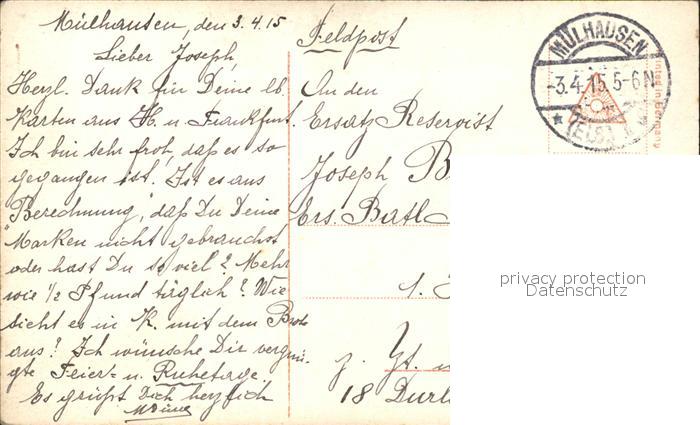 Mülhausen, den 3.4.15
Lieber Joseph,
Herzl. Dank für Deine lb.
Karten aus H. u. Frankfurt.
Ich bin sehr froh, daß es so
gegangen ist. Ist es aus
"Berechnung", daß Du Deine
Marken nicht gebrauchst
oder hast Du so viel? Mehr
wie 1/2 Pfund täglich? Wie
sieht es in K. mit dem Brote
aus? Ich wünsche Dir vergnü-
gte Feier- u. Ruhetage.
Es grüßt Dich herzlich
Feldpost
An den
Ersatz Reservist
Joseph B
Ers. Batl
1.
z. Zt.
18 Durl
MÜLHAUSEN
-3.4.15.5-6N
* (ELS.)
Printed in Germany
privacy protection
Datenschutz